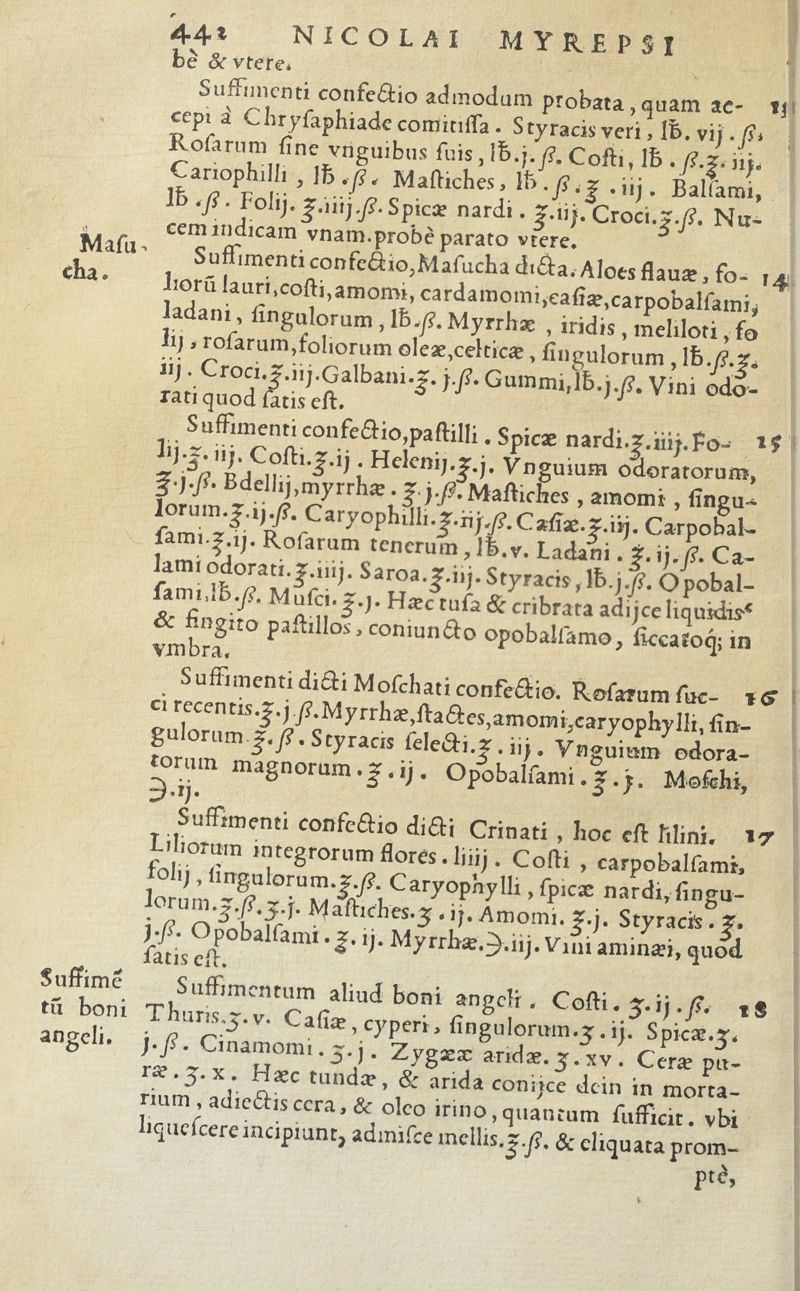 442 NICOLAI MYREPSI
bè & vtere.
Suffimenti confectio admodum probata, quam ac- 13
cepi à Chrysaphiade comitissa. Styracis veri, lb. vij. ß.
Rosarum sine vnguibus suis, lb.j.ß. Costi, lb.ß.℥. iij.
Cariophilli, lb.ß. Mastiches, lb.ß.℥.iij. Balsami,
lb.ß. Folij.℥.iiij.ß. Spicæ nardi.℥.iij. Croci.℥.ß. Nu-
cem indicam vnam.probè parato vtere.
Masu-
cha.
Suffimenti confectio, Masucha dicta. Aloes flauæ, fo- 14
liorū lauri, costi, amomi, cardamomi, casiæ, carpobalsami,
ladani, singulorum, lb.ß. Myrrhæ, iridis, meliloti, fo
lij, rosarum, foliorum oleæ, celticæ, singulorum, lb.ß.℥.
iij. Croci.℥.iij. Galbani.℥.j.ß. Gummi, lb.j.ß. Vini odo-
rati quod satis est.
Suffimenti confectio, pastilli. Spicæ nardi.℥.iiij. Fo- 15
lij.℥.iij. Costi.℥.ij. Helenij.℥.j. Vnguium odoratorum,
℥.j.ß. Bdellij, myrrhæ.℥.j.ß. Mastiches, amomi, singu-
lorum.℥.ij.ß. Caryophilli.℥.iij.ß. Casiæ.℥.iij. Carpobal-
sami.℥.ij. Rosarum tenerum, lb.v. Ladani.℥.ij.ß. Ca-
lami odorati.℥.iiij. Saroa.℥.iij. Styracis, lb.j.ß. Opobal-
sami, lb.ß. Musci.℥.j. Hæc tusa & cribrata adijce liquidis
& fingito pastillos, coniuncto opobalsamo, siccatoq; in
vmbra.
Suffimenti dicti Moschati confectio. Rosarum suc- 16
ci recentis.℥.j.ß. Myrrhæ, stactes, amomi, caryophylli, sin-
gulorum.℥.ß. Styracis selecti.℥.iij. Vnguium odora-
torum magnorum.℥.ij. Opobalsami.℥.j. Moschi,
℈.ij.
Suffimenti confectio dicti Crinati, hoc est lilini. 17
Liliorum integrorum flores. liiij. Costi, carpobalsami,
folij, singulorum.℥.ß. Caryophylli, spicæ nardi, singu-
lorum.℥.ß.℥.j. Mastiches.ʒ.ij. Amomi.℥.j. Styracis.℥.
j.ß. Opobalsami.℥.ij. Myrrhæ.℈.iij. Vini aminæi, quod
satis est.
Suffimē
tū boni
angeli.
Suffimentum aliud boni angeli. Costi.ʒ.ij.ß. 18
Thuris.ʒ.v. Casiæ, cyperi, singulorum.ʒ.ij. Spicæ.ʒ.
j.ß. Cinamomi.ʒ.j. Zygææ aridæ.ʒ.xv. Ceræ pu-
ræ.ʒ.x. Hæc tundæ, & arida conijce dein in morta-
rium, adiectis cera, & oleo irino, quantum sufficit. vbi
liquescere incipiunt, admisce mellis.℥.ß. & eliquata prom-
ptè,